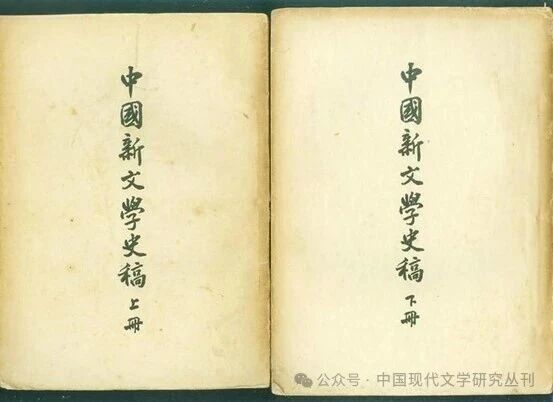 中國新文學史稿 上冊
中國新文學史稿 下冊
公众号·中国现代文学研究丛刊